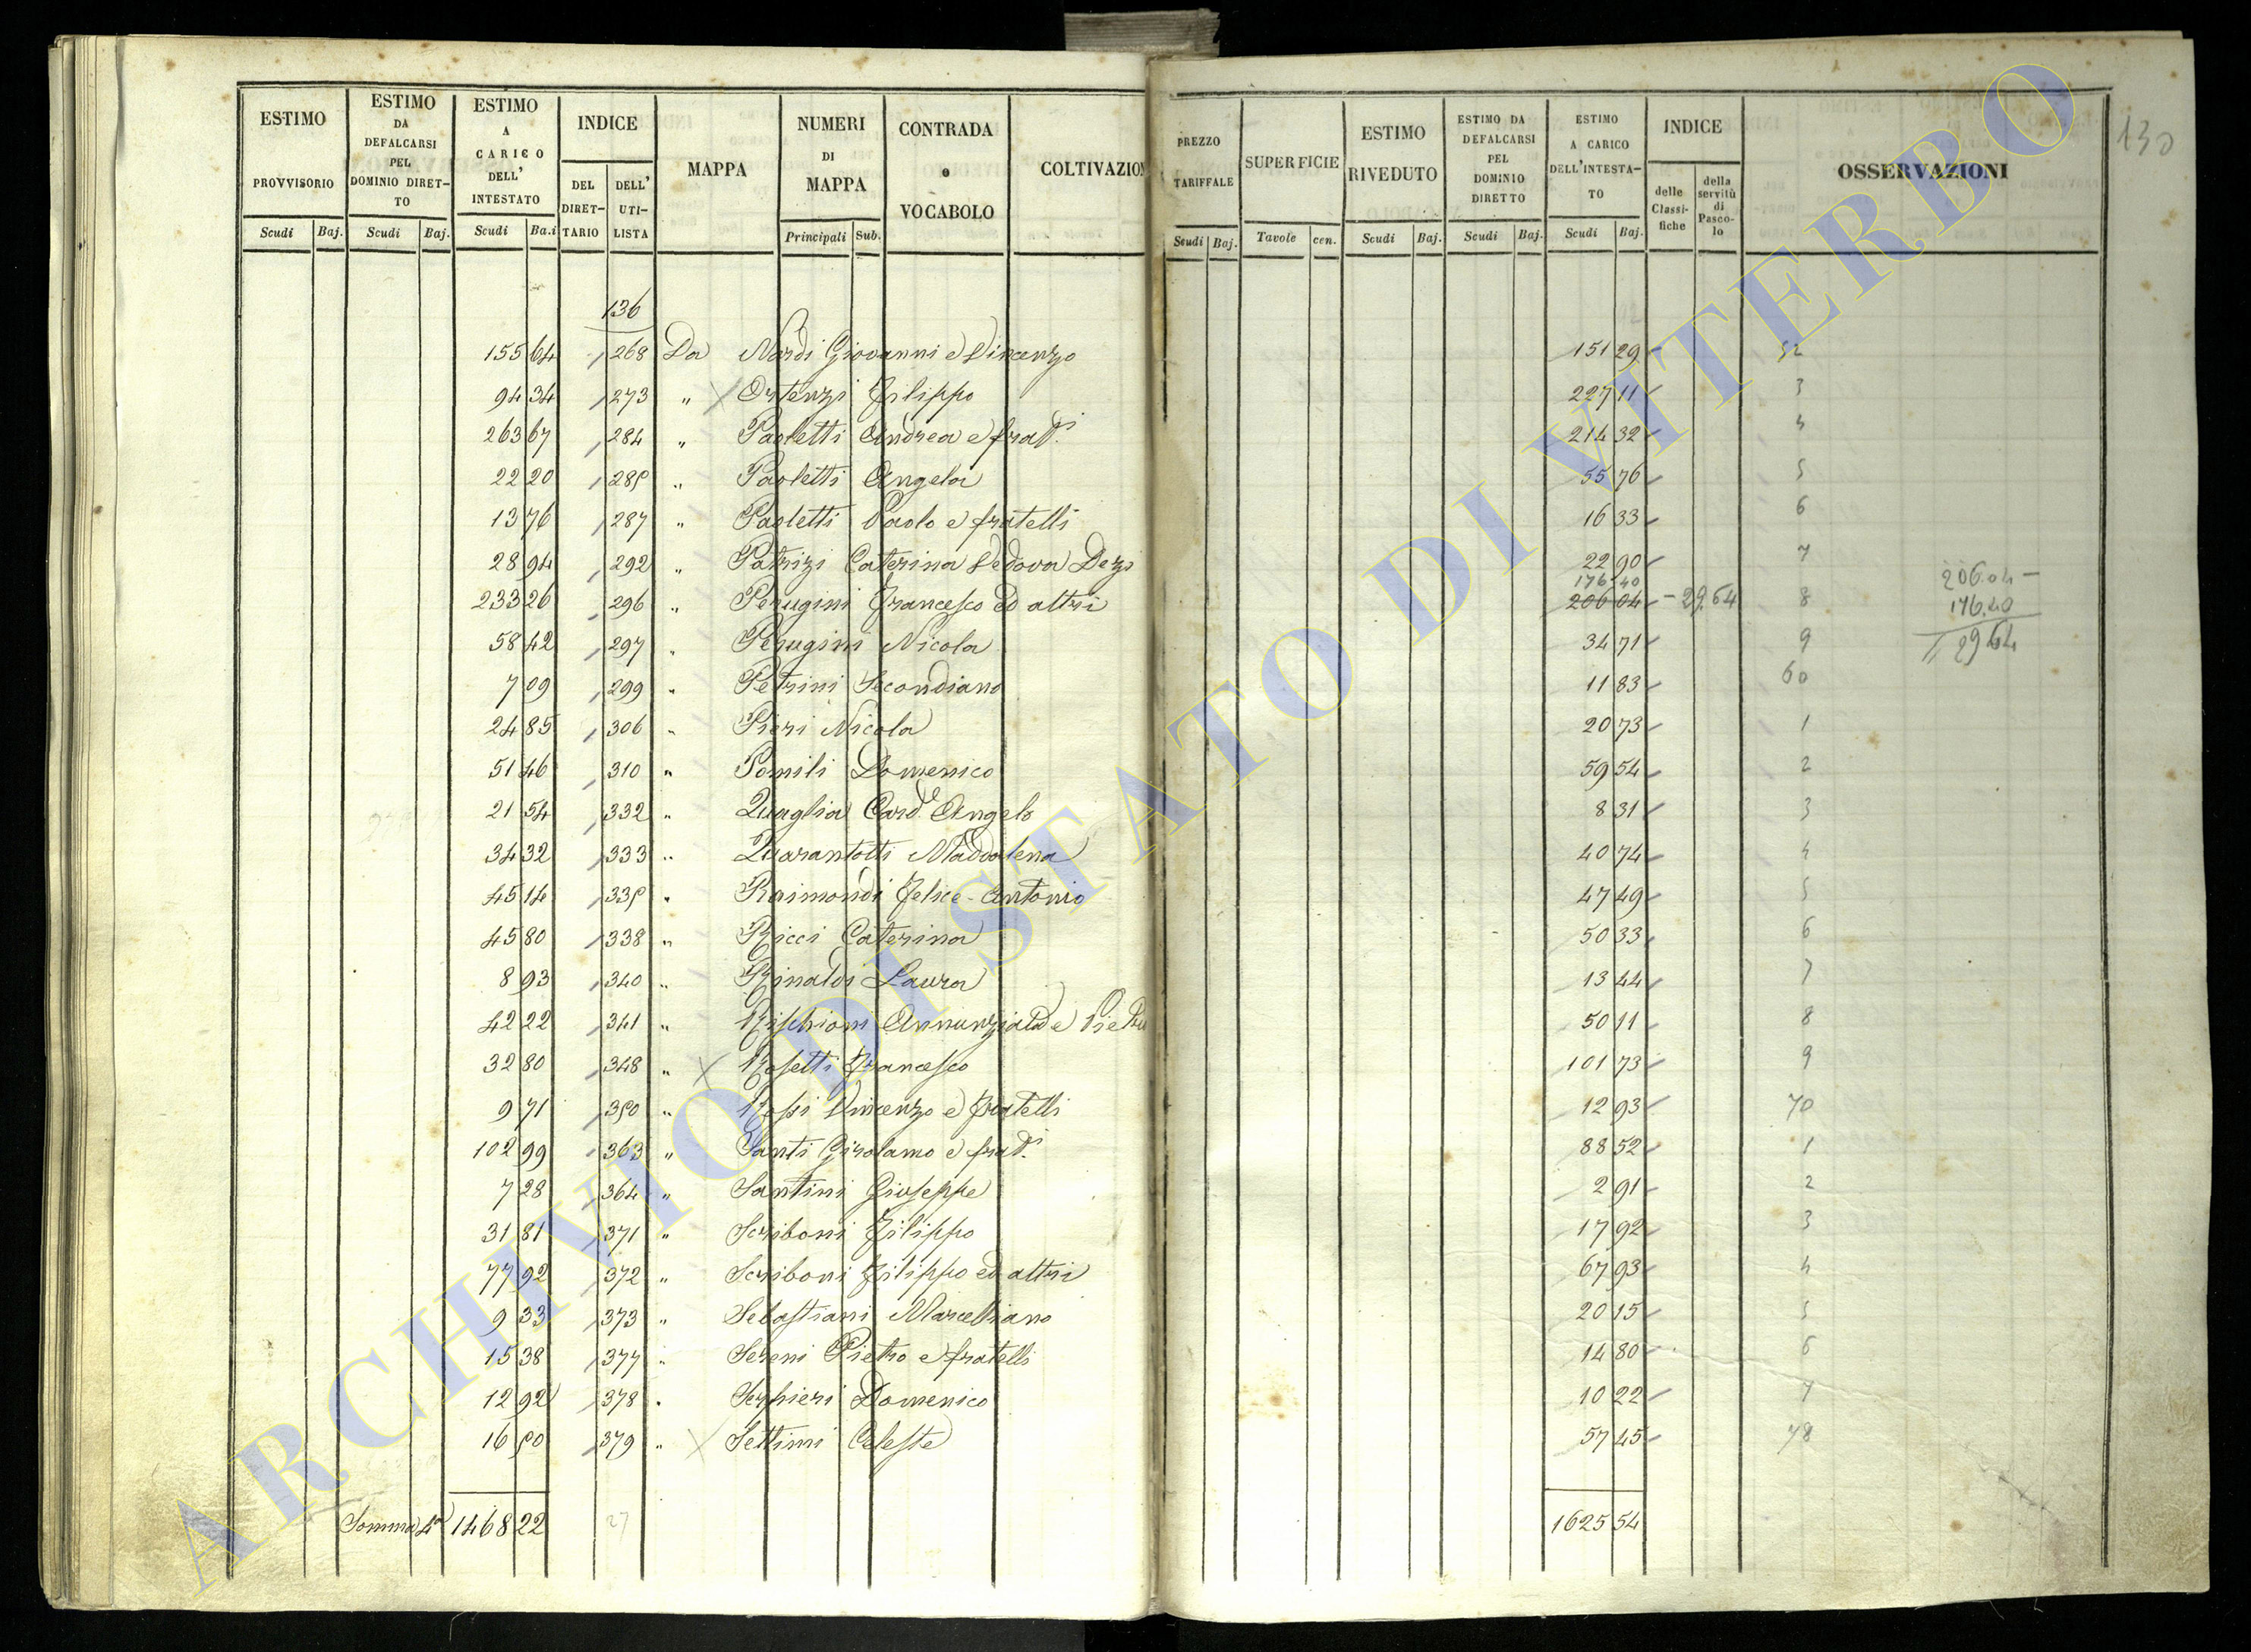 ESTIMO PROVVISORIO Scudi Baj.
ESTIMO DA DEFALCARSI PEL DOMINIO DIRET-TO Scudi Baj.
ESTIMO A CARICO DELL' INTESTATO Scudi Ba.i
INDICE DEL DIRET-TARIO DELL' UTI-LISTA
MAPPA
NUMERI DI MAPPA Principali Sub.
CONTRADA o VOCABOLO
COLTIVAZION
PREZZO TARIFFALE Scudi Baj.
SUPERFICIE Tavole cen.
ESTIMO RIVEDUTO Scudi Baj.
ESTIMO DA DEFALCARSI PEL DOMINIO DIRETTO Scudi Baj.
ESTIMO A CARICO DELL'INTESTA-TO Scudi Baj.
INDICE delle Classi-fiche della servitù di Pasco-lo
OSSERVAZIONI
130
136
155 64 268 Da Nardi Giovanni e Vincenzo 151 29 52
94 34 273 " Ortenzi Filippo 227 11 3
263 67 284 " Paoletti Andrea e frat.i 214 32 4
22 20 285 " Paoletti Angela 55 76 5
13 76 287 " Paoletti Paolo e fratelli 16 33 6
28 94 292 " Patrizi Caterina Vedova Dezi 22 90 7
176 40
233 26 296 " Perugini Francesco ed altri 206 04 - 29.64 8
206.04 -
176.40
29 64
58 42 297 " Perugini Nicola 34 71 9
7 09 299 " Petrini Secondiano 11 83 60
24 85 306 " Pieri Nicola 20 73 1
51 46 310 " Pomili Domenico 59 54 2
21 54 332 " Quaglia Card.e Angelo 8 31 3
34 32 333 " Quarantotti Maddalena 40 74 4
45 14 335 " Raimondi Felice-Antonio 47 49 5
45 80 338 " Ricci Caterina 50 33 6
8 93 340 " Rinaldi Laura 13 44 7
42 22 341 " Rischioni Annunziata e 50 11 8
32 80 348 " Rosetti Francesco 101 73 9
9 71 350 " Rossi Vincenzo e fratelli 12 93 70
102 99 363 " Santi Girolamo e frat.i 88 52 1
7 28 364 " Santini Giuseppe 2 91 2
31 81 371 " Scriboni Filippo 17 92 3
77 92 372 " Scriboni Filippo ed altri 67 93 4
9 33 373 " Sebastiani Marcelliano 20 15 5
15 38 377 " Sereni Pietro e fratelli 14 80 6
12 92 378 " Serpieri Domenico 10 22 7
16 50 379 " Settimi Celeste 57 45 78
Somma 4a 1468 22 27 1625 54
ARCHIVIO DI STATO DI VITERBO